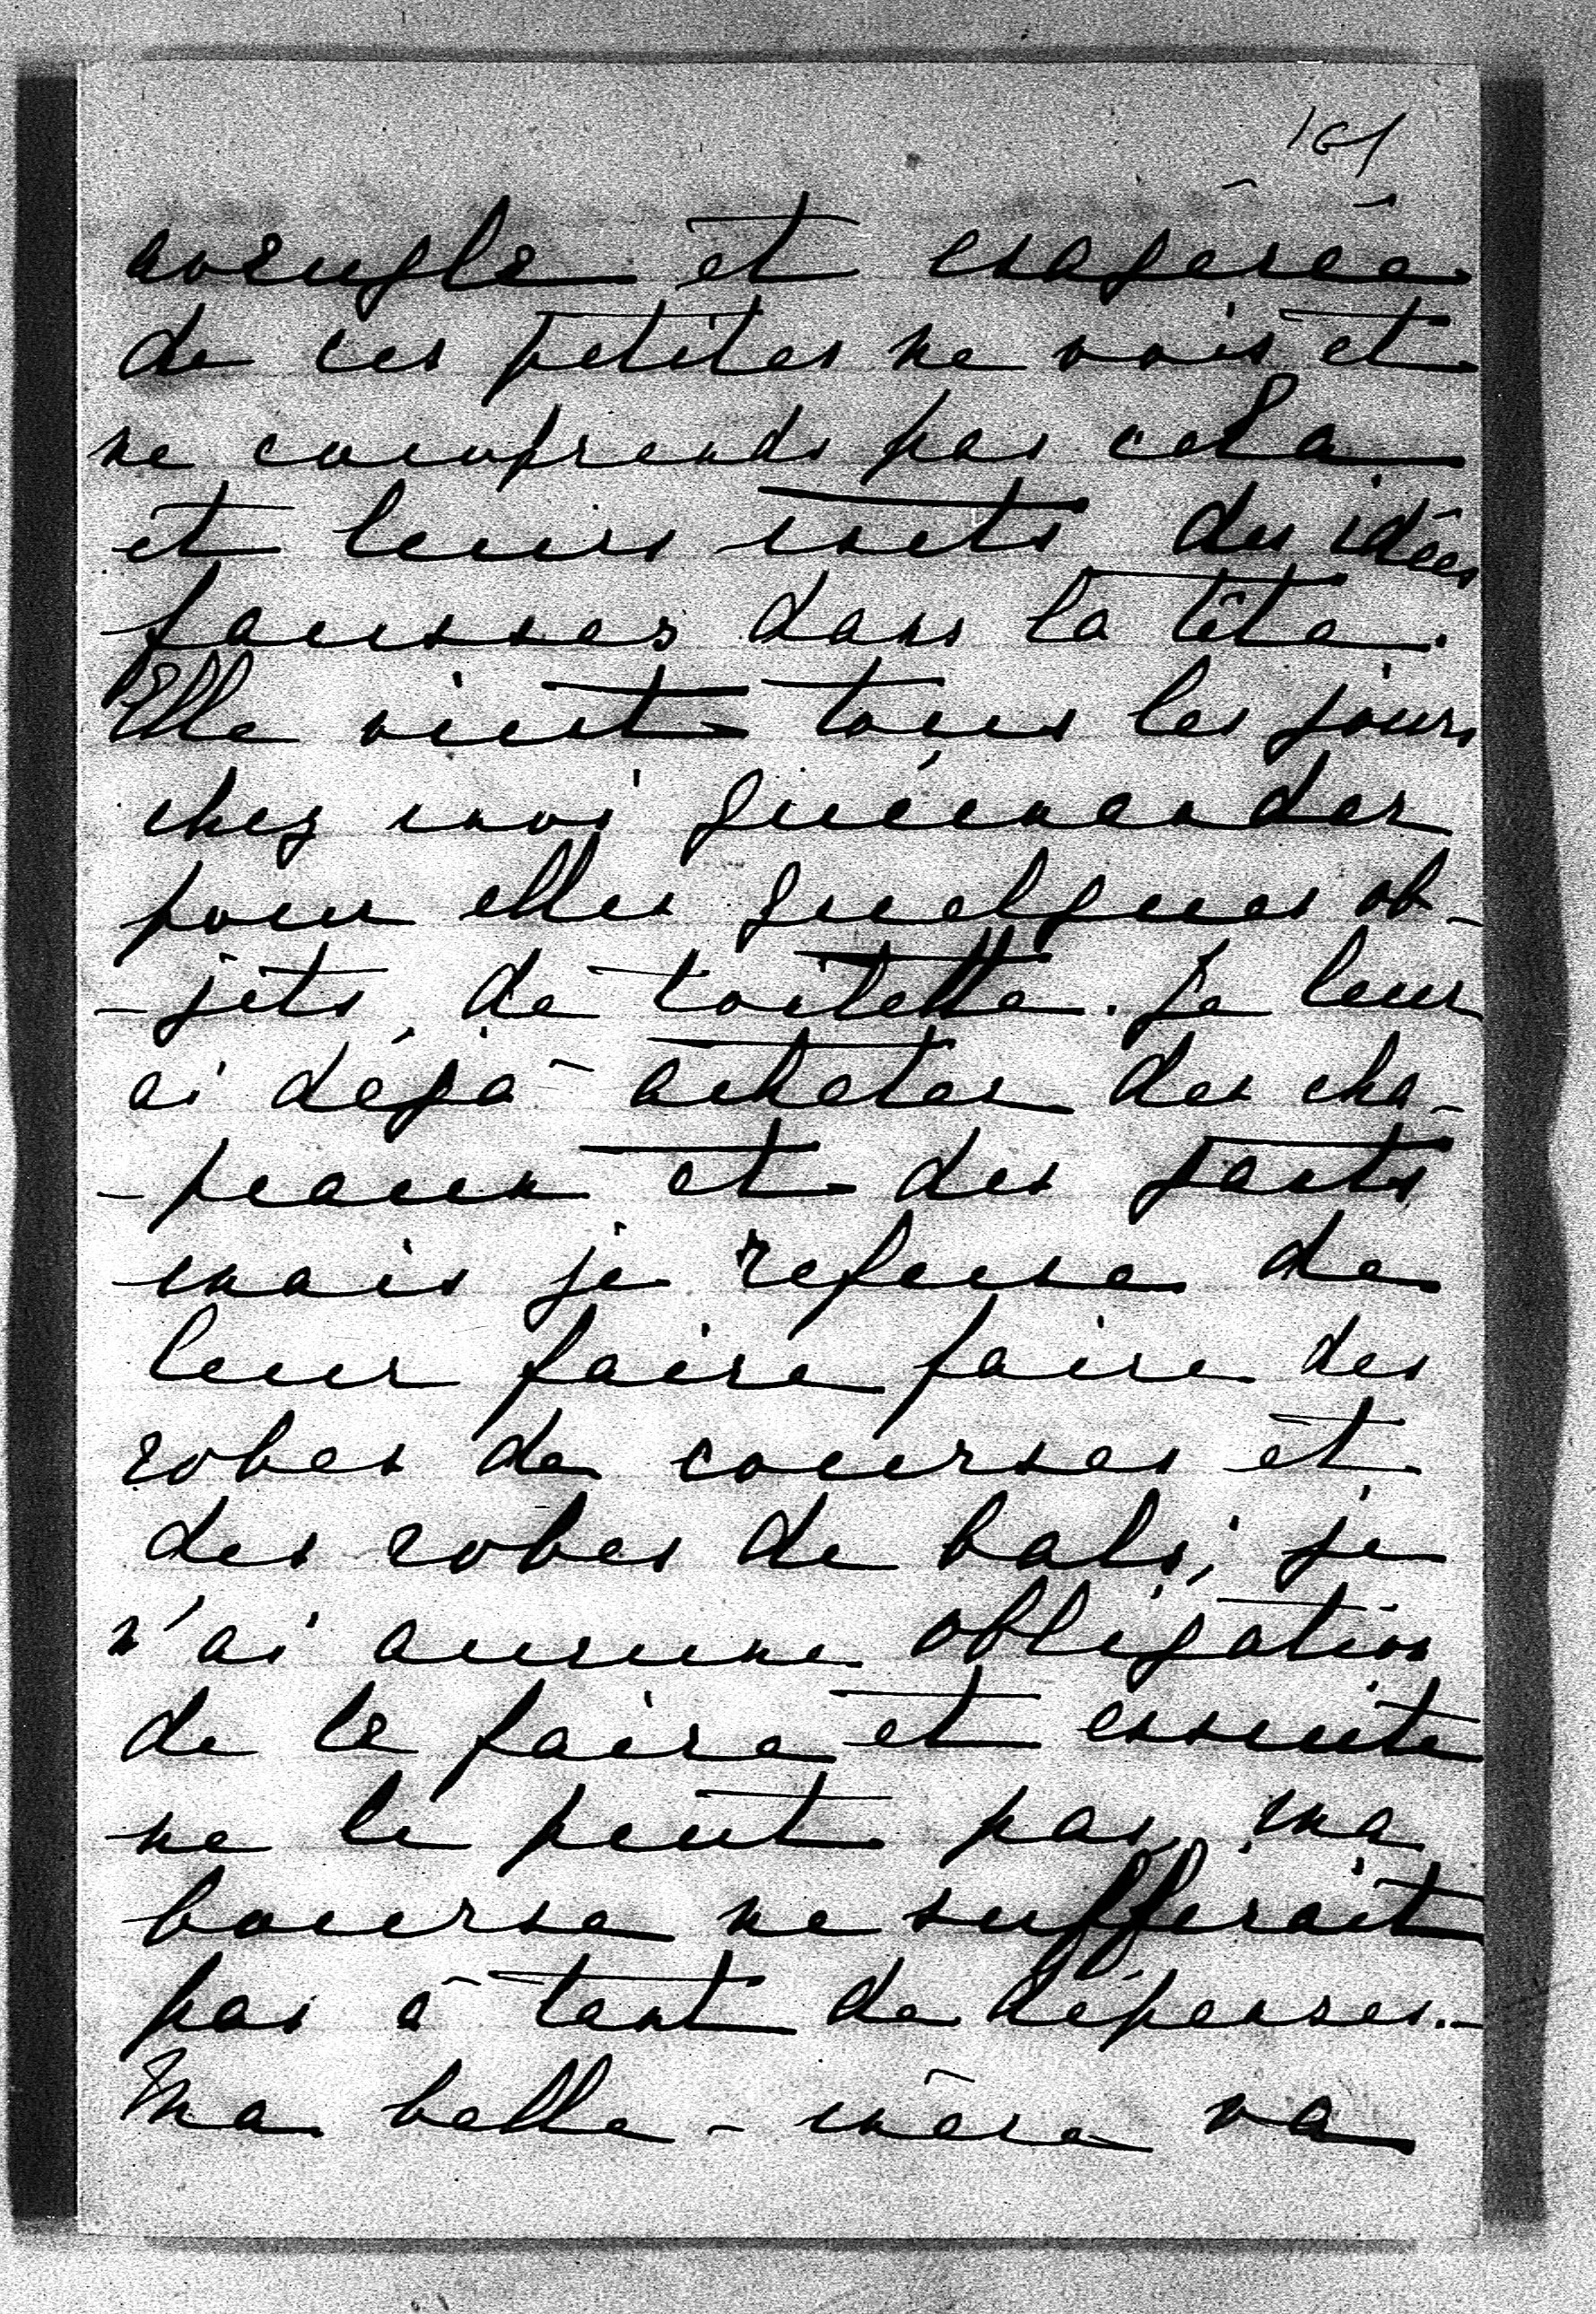 aveugle et exagérée
de ces petites ne vois et
ne comprends pas cela
et leurs mets des idées
fausses dans la tête.
Elle vient tous les jours
chez moi quémender
pour elles quelques ob-
-jets de toilette. Je leur
ai déjà acheter des cha-
-peaux et des gants
mais je refuse de
leur faire faire des
robes de courses et
des robes de bals; je
n'ai aucune obligation
de le faire et ensuite
ne le peut pas, ma
bourse ne sufferait
pas à tant de dépenses.-
Ma belle-mère va